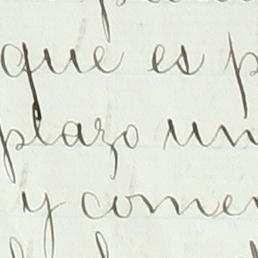 que es p
plazo un
y comen